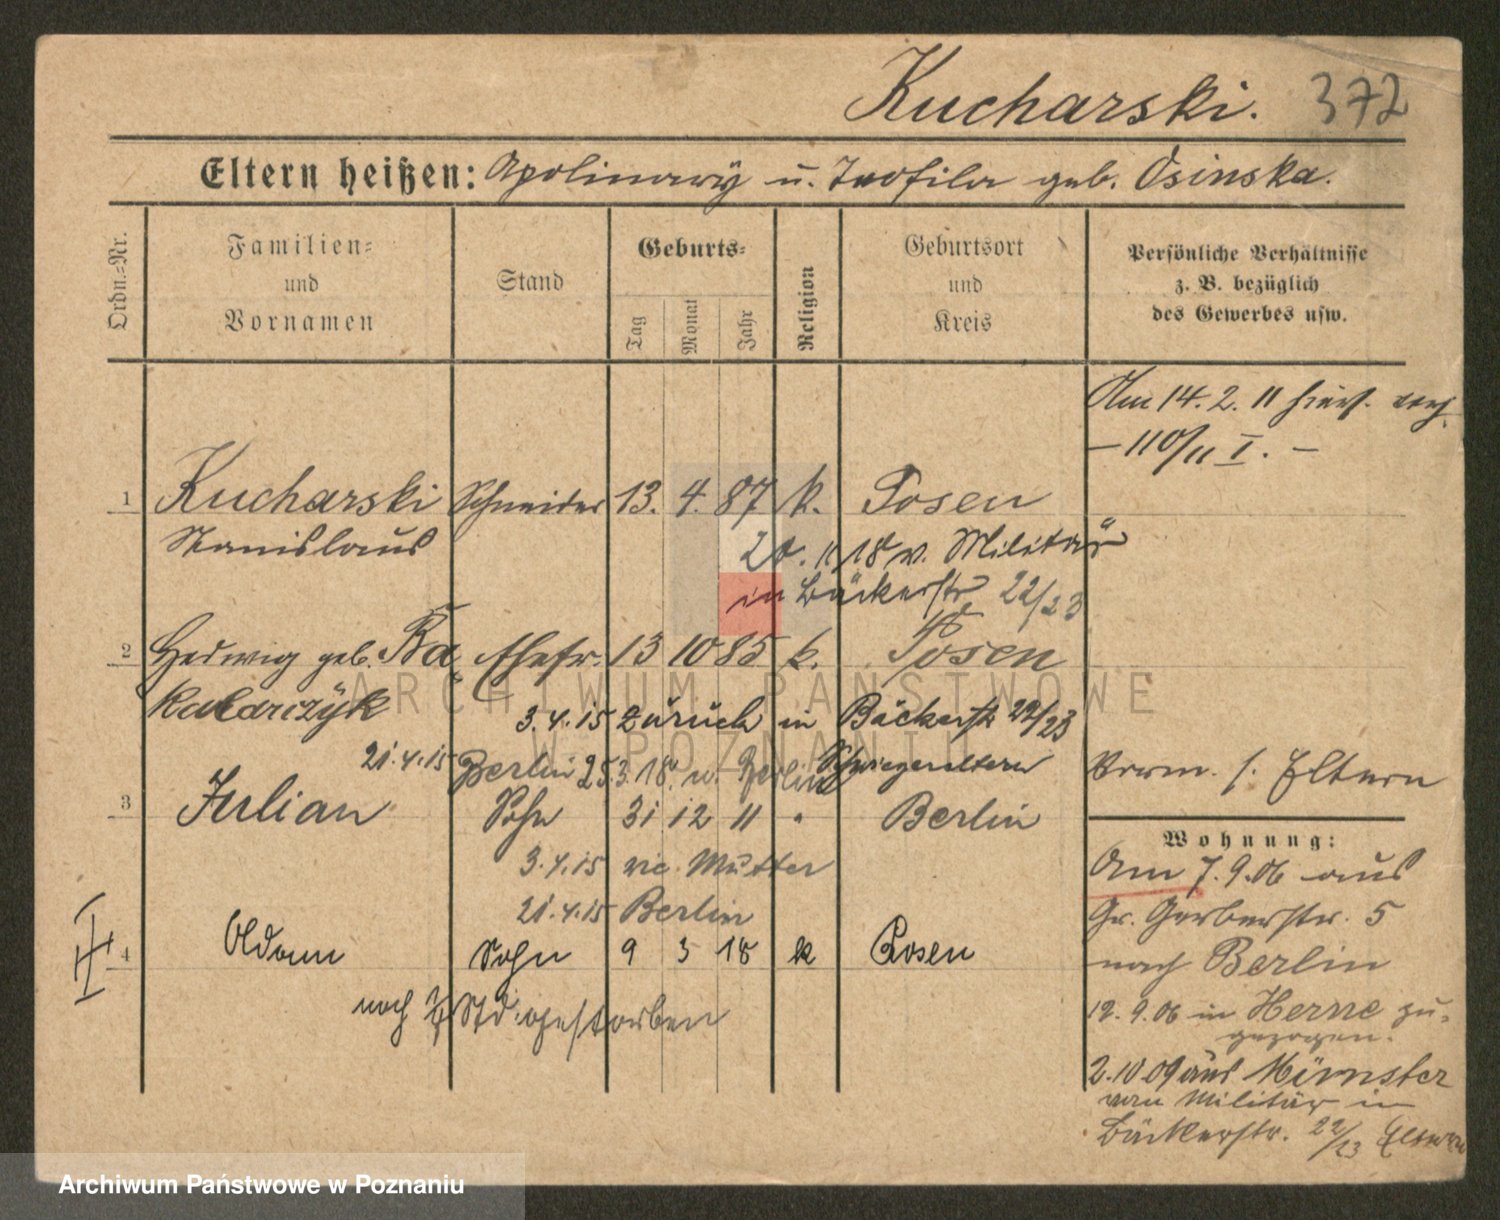 Kucharski. 372
Eltern heißen: Apolinary u. Teofila geb. Osinska.
Ordn.=Nr.
Familien=
und
Vornamen
Stand
Geburts=
Tag
Monat
Jahr
Religion
Geburtsort
und
Kreis
Persönliche Verhältnisse
z. B. bezüglich
des Gewerbes usw.
Am 14. 2. 11 hier.
– 110/11 I. –
1 Kucharski Schneider 13. 4. 87 k. Posen
Stanislaus
20. 11 18 v. Militär
in Bäckerstr 22/23
2 Hedwig geb. Ra Ehefr. 13 10 85 k. Posen
3.4.15 zurück in Bäckerstr 22/23
21.4.15 Berlin 25.3.18. v. Berlin Schwiegereltern
Verm. s. Eltern
3 Julian Sohn 31 12 11 " Berlin
3.4.15 Mutter
21.4.15 Berlin
4 Sohn 9 3 18 k Posen
II
nach ½ Std. gestorben
Wohnung:
Am 7. 9. 06 aus
Gr. Gerberstr. 5
nach Berlin
12. 9. 06 in Herne zu=
gezogen.
2.10 09 aus Münster
vom Militär in
Bäckerstr. 22/23 Eltern
ARCHIWUM PAŃSTWOWE
W POZNANIU
Archiwum Państwowe w Poznaniu